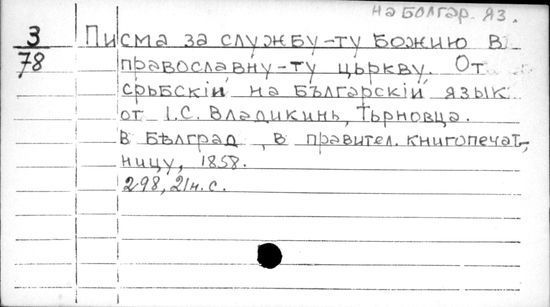 на БОЛГАР. ЯЗ.
3
78
Писма за службу-ту Божию в
православну-ту църкву. От
сръбскій на Българскій язык
от І.С. Владикинь, Търновца.
в Бѣлград, в правител. книгопечат-
ницу, 1858.
298, 21н. с.